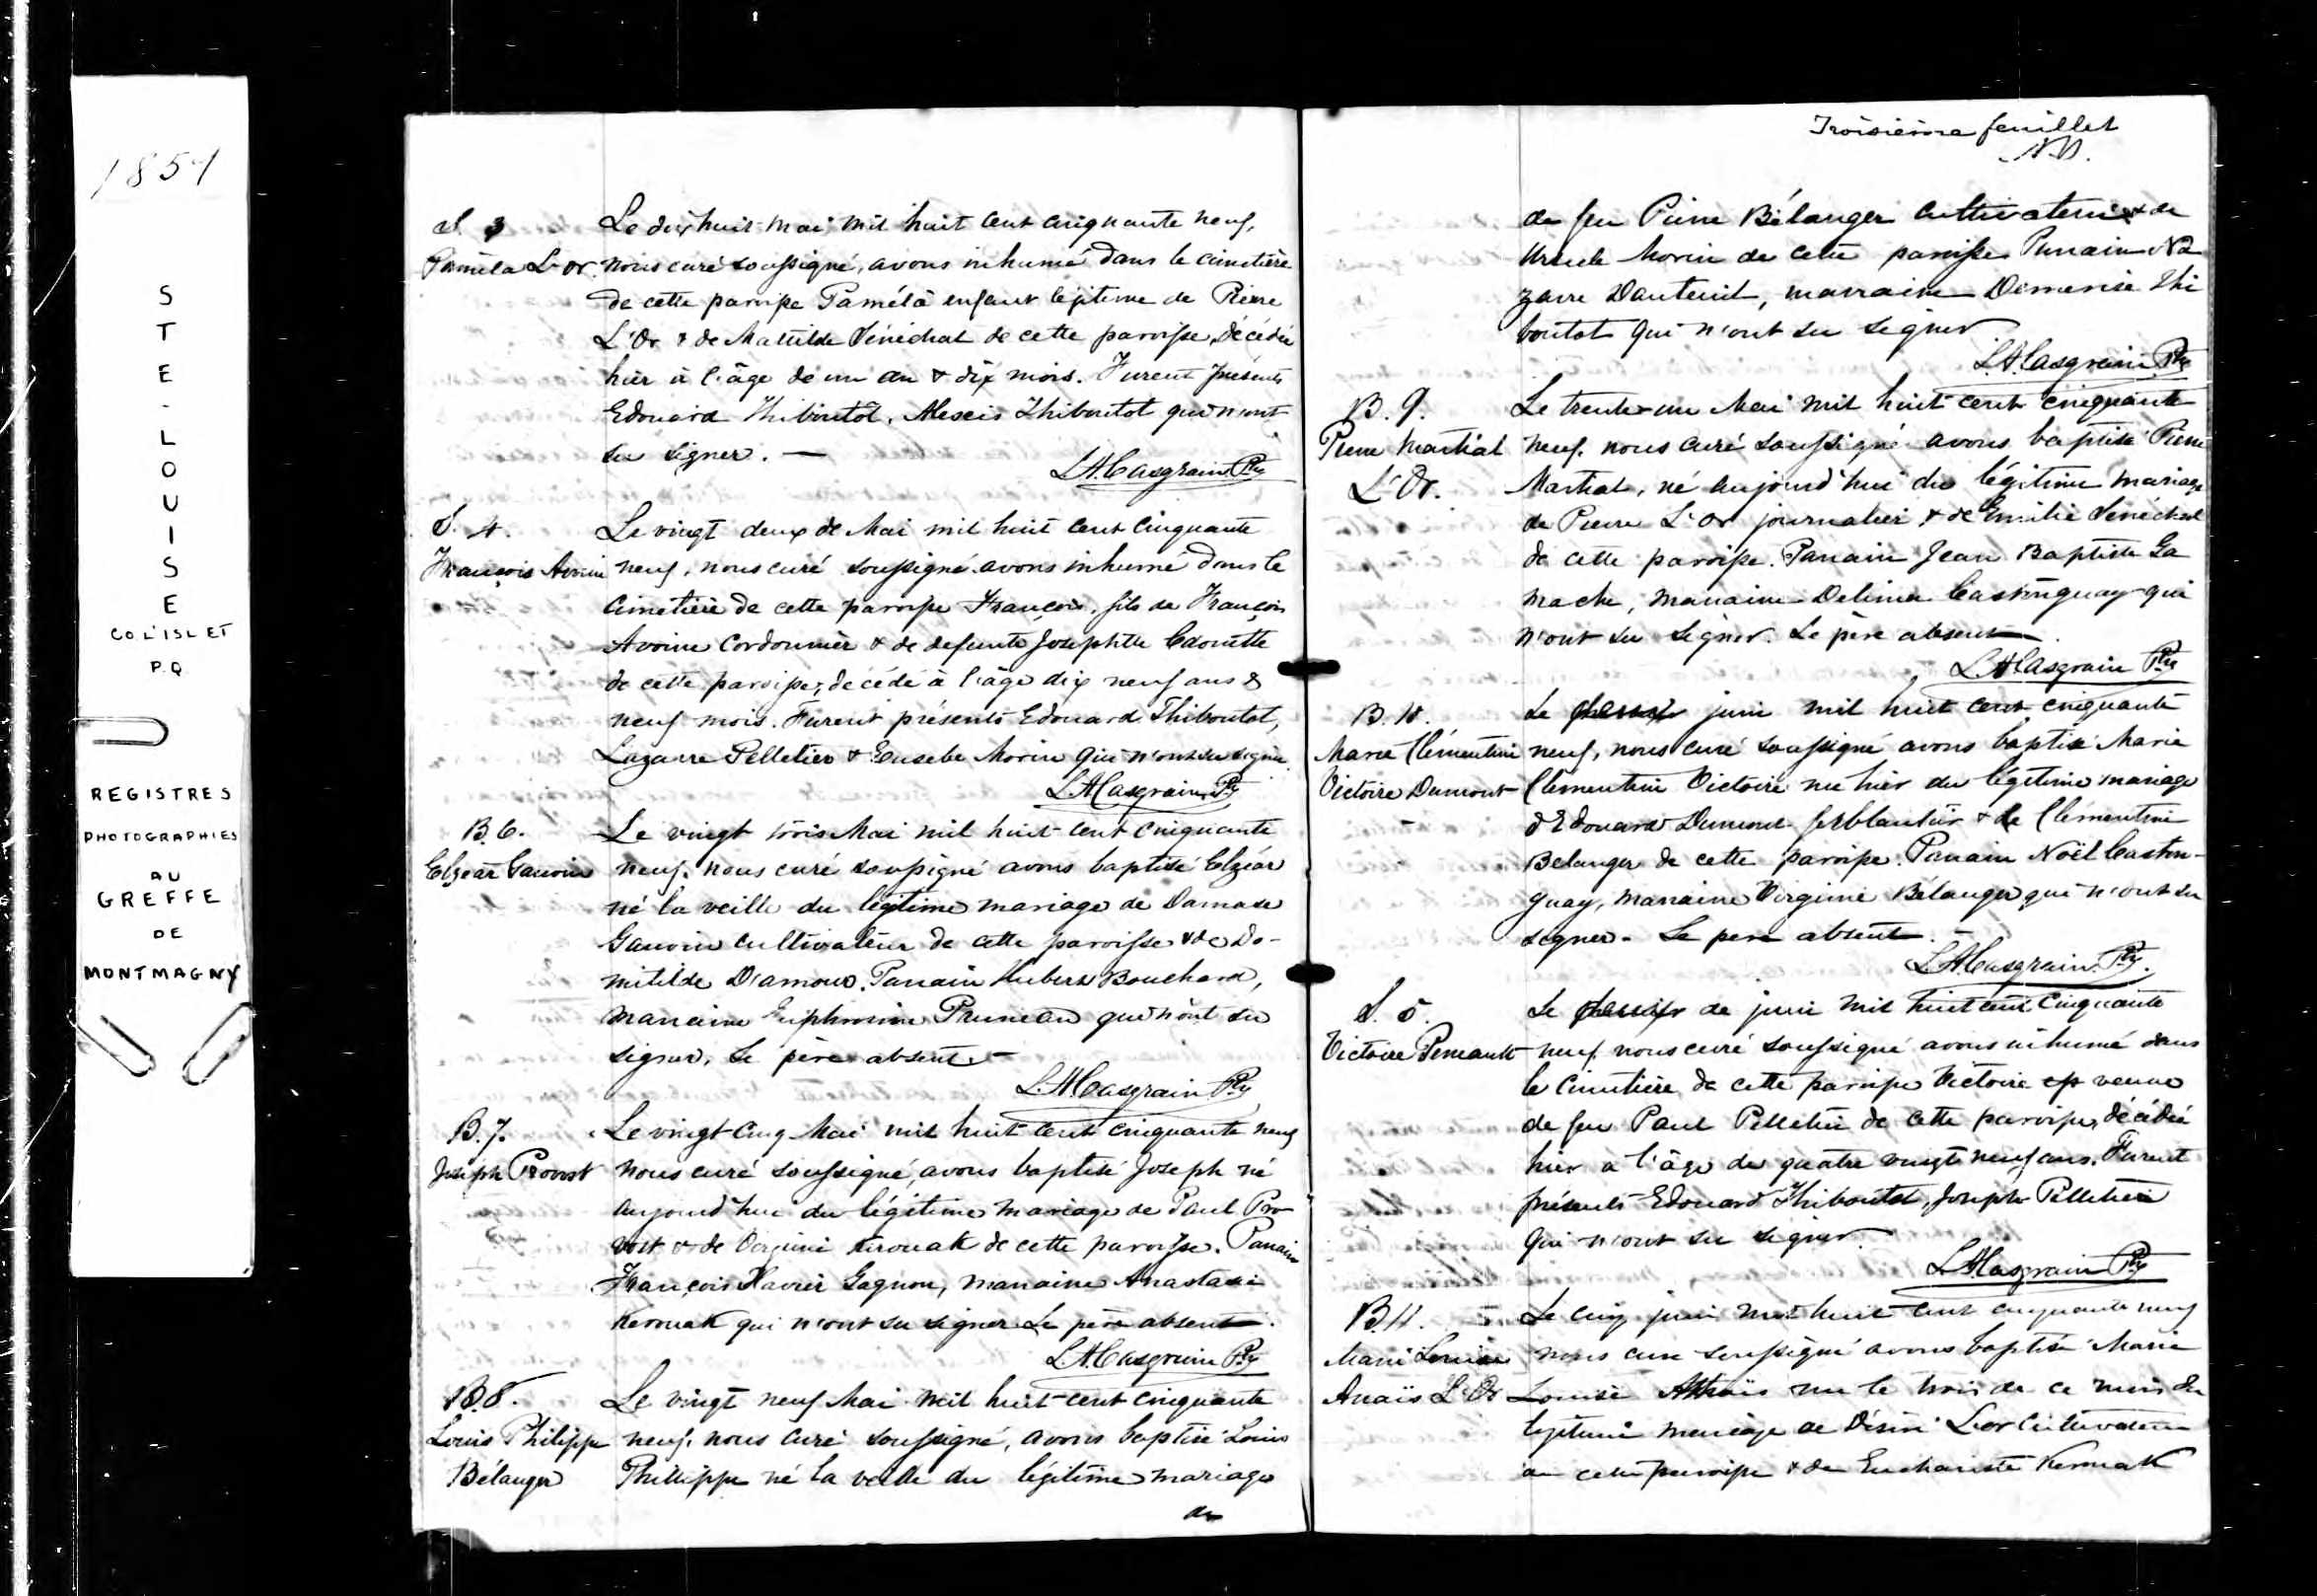 1859
STE-LOUISE
CO L'ISLET
P.Q
REGISTRES
PHOTOGRAPHIES
AU
GREFFE
DE
MONTMAGNY
S. 3
Paméla L'Or
Le dix huit mai mil huit cent cinquante neuf,
nous curé soussigné, avons inhumé dans le cimetière
de cette paroisse Paméla enfant légitime de Pierre
L'Or & de Matilde Sénéchal de cette paroisse, décédée
hier à l'âge de un an & dix mois. Furent présents
Edouard Thiboutot, Alexis Thiboutot qui n'ont
su signer. —
L.A. Casgrain Ptre
S. 4.
François Avoine
Le vingt deux de Mai mil huit cent cinquante
neuf, nous curé soussigné avons inhumé dans le
Cimetière de cette paroisse François, fils de François
Avoine Cordonnier & de defunte Josephtte Caouette
de cette paroisse, décédé à l'âge dix neuf ans &
neuf mois. Furent présents Edouard Thiboutot,
Lazarre Pelletier & Eusebe Morin qui n'ont su signer.
L.A. Casgrain Ptre
B. 6.
Elzéar Gauvin
Le vingt trois Mai mil huit cent cinquante
neuf, nous curé soussigné avons baptisé Elzéar
né la veille du légitime mariage de Damase
Gauvin cultivateur de cette paroisse & de Do-
mitilde D'amour. Parrain Hubert Bouchard,
marraine Euphrosine Pruneau qui n'ont su
signer. Le père absent. —
L.A. Casgrain Ptre
B. 7.
Joseph Provost
Le vingt-cinq Mai mil huit cent cinquante neuf
nous curé soussigné, avons baptisé Joseph né
aujourd'hui du légitime mariage de Paul Pro-
vost & de Virginie Kirouak de cette paroisse. Parrain
François Xavier Gagnon, marraine Anastasie
Kerouak qui n'ont su signer. Le père absent.
L.A. Casgrain Ptre
B. 8.
Louis Philippe
Bélanger
Le vingt neuf Mai mil huit-cent cinquante
neuf, nous Curé soussigné, avons baptisé Louis
Phillippe né la veille du légitime mariage
de
Troisième feuillet
de feu Pierre Bélanger Cultivateur & de
Ursule Morin de cette paroisse Parrain Na
zarre Dauteuil, marraine Démerise Thi
boutot qui n'ont su signer
L.A. Casgrain Ptre
B. 9.
Pierre Martial
L'Or.
Le trente-un Mai mil huit cent cinquante
neuf, nous curé soussigné avons baptisé Pierre
Martial, né aujourd'hui du légitime mariage
de Pierre L'Or journalier & de Emilie Sénéchal
de cette paroisse. Parrain Jean Baptiste Ga
mache, marraine Delima Castonguay qui
n'ont su signer. Le père absent.
L.A. Casgrain Ptre
B. 10.
Marie Clémentine
Victoire Dumont
Le premier juin mil huit cent cinquante
neuf, nous curé soussigné avons baptisé Marie
Clémentine Victoire née hier du légitime mariage
d'Edouard Dumont ferblantier & de Clémentine
Belanger de cette paroisse. Parrain Noël Caston-
guay, marraine Virginie Bélanger qui n'ont su
signer. Le père absent. —
L.A. Casgrain. Ptre.
S. 5.
Victoire Peneault
Le premier de juin mil huit cent cinquante
neuf, nous curé soussigné avons inhumé dans
le cimetière de cette paroisse Victoire veuve
de feu Paul Pelletier de cette paroisse, décédée
hier a l'âge de quatre vingt neuf ans. Furent
présents Edouard Thiboutot, Joseph Pelletier
qui n'ont su signer.
L.A. Casgrain Ptre
B. 11.
Marie Louise
Anaïs L'Or
Le cinq juin mil huit cent cinquante neuf
nous curé soussigné avons baptisé Marie
Louise née le trois de ce mois du
légitime mariage de Désiré Lor Cultivateur
de cette paroisse & de Euchariste Kerouak